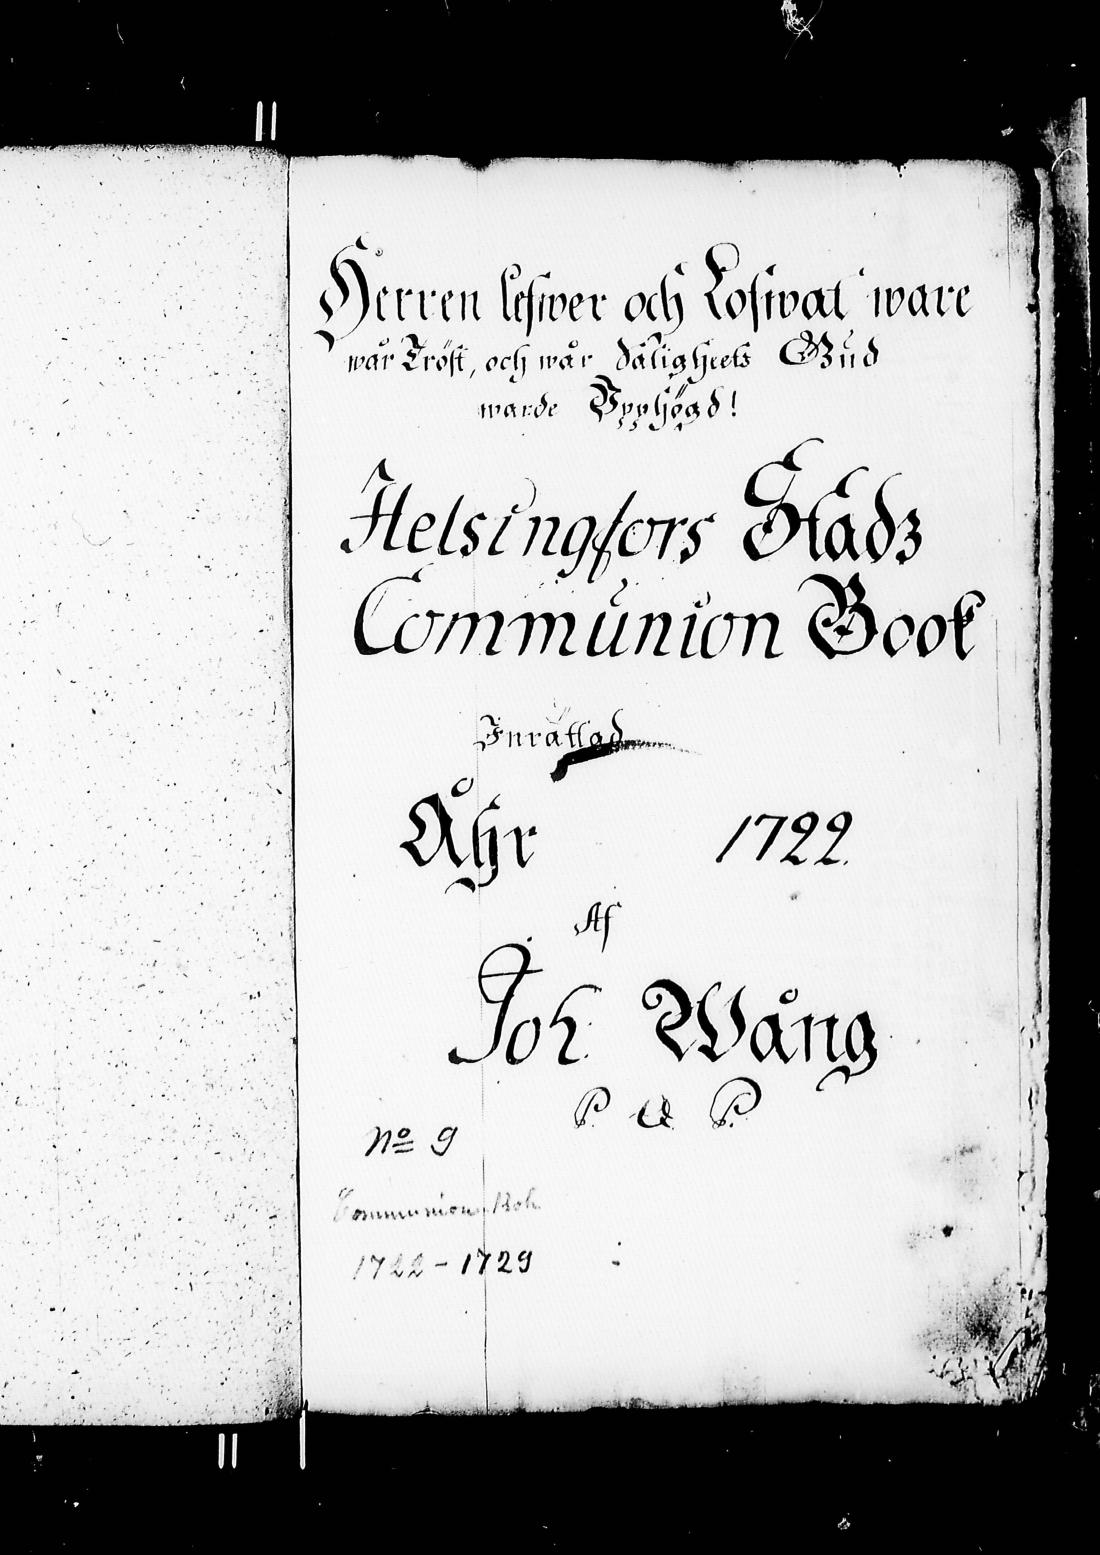 Herren lefwer och Lofwat ware
wår Tröst, och wår Säligheets Gud
warde Vpphögd!
Helsingfors Stadz
Communion Book
Inrättad
Åhr 1722.
Af
Joh Wång
P. & P.
No 9
Communion Bok
1722-1729